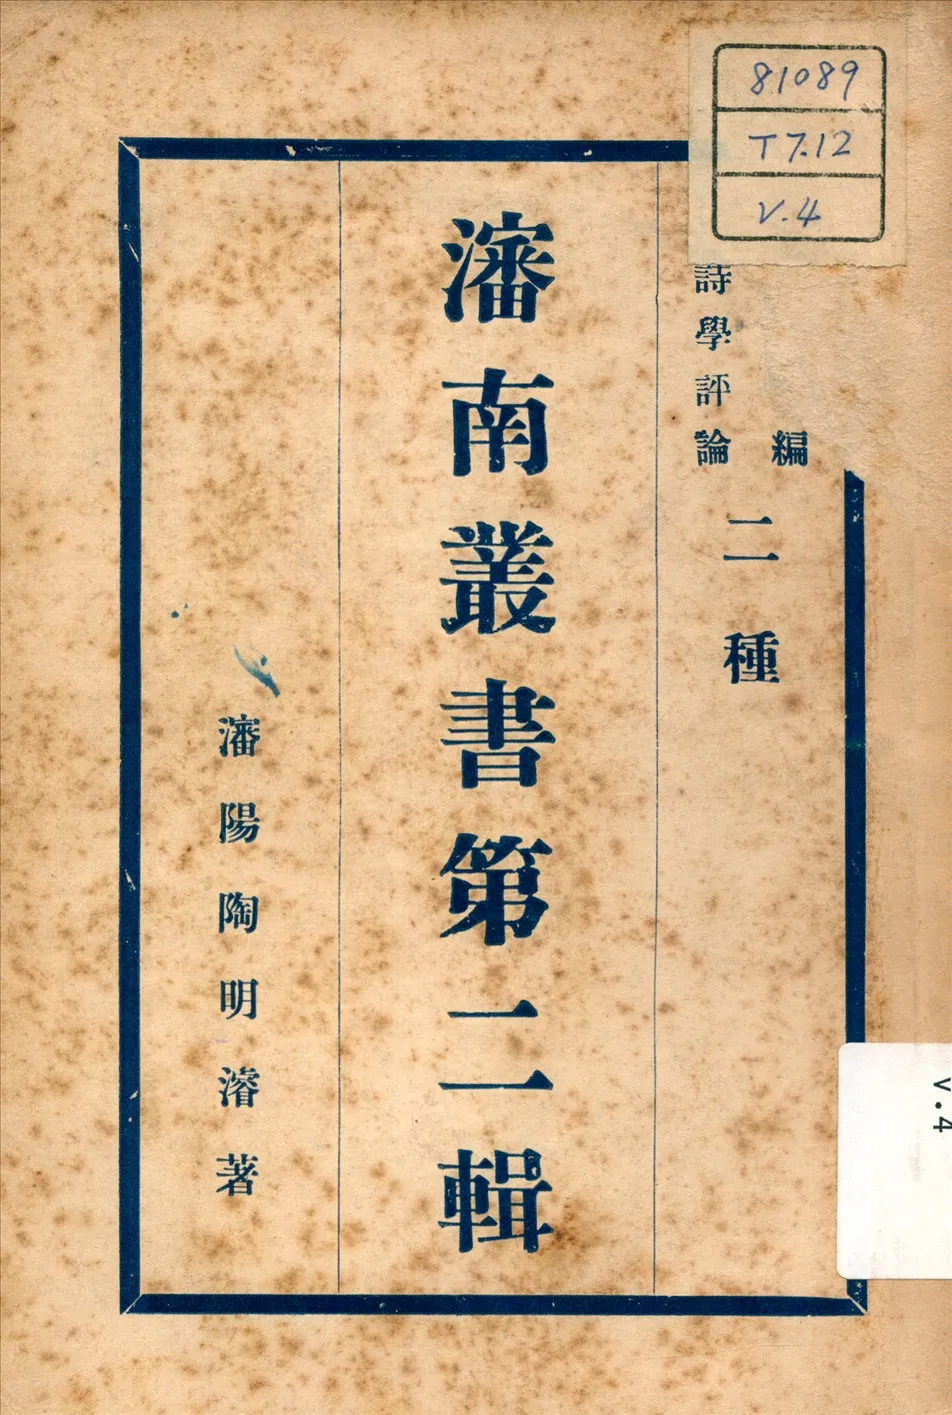 81089
T 7.12
V.4
編
詩學評論
二種
瀋南叢書第二輯
瀋陽陶明濬著
v.4